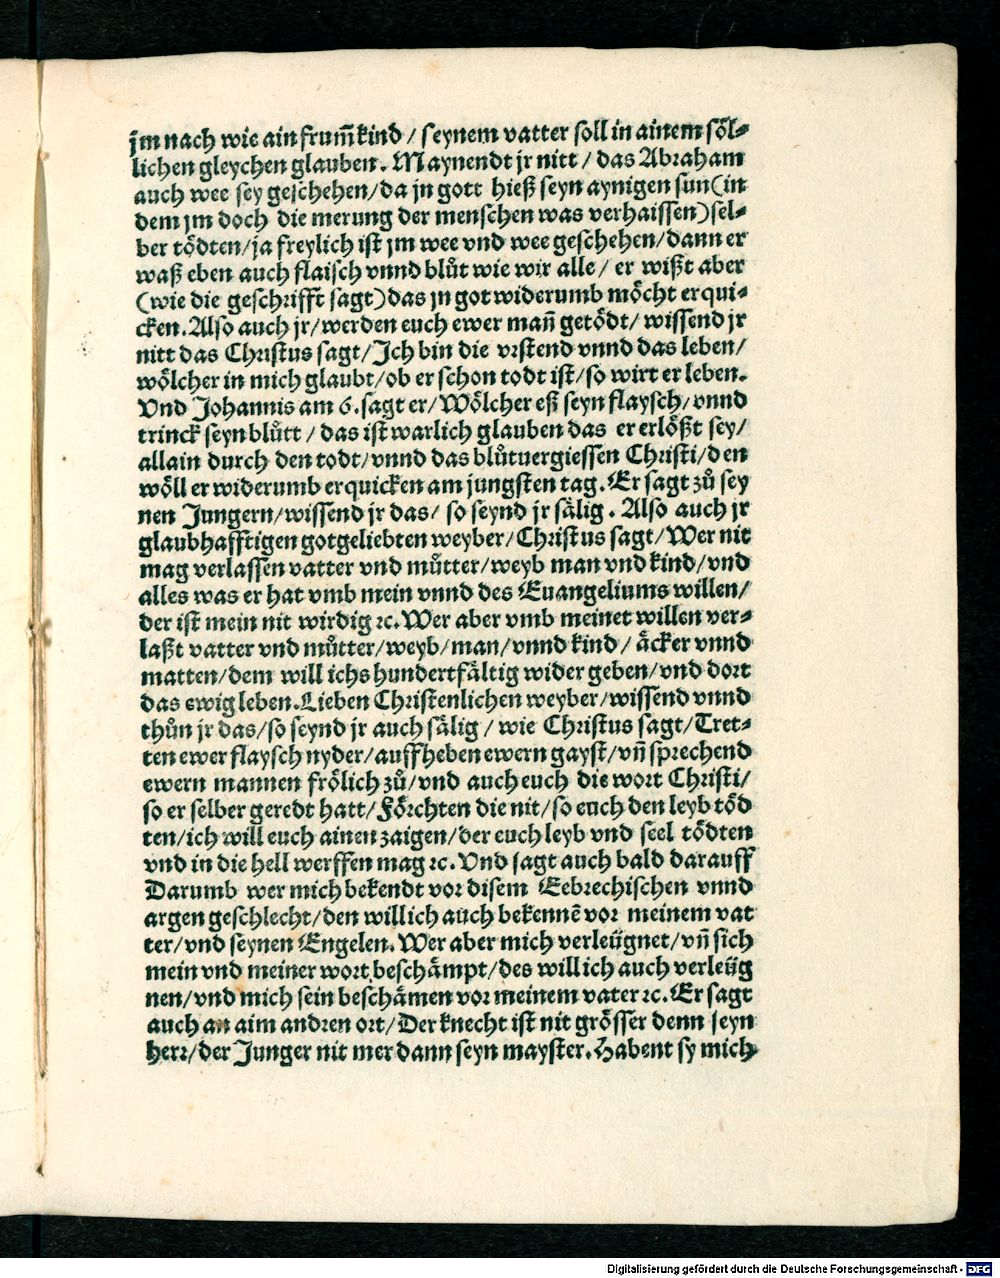 jm nach wie ain frum̄ kind / seynem vatter soll in ainem söl⸗
lichen gleychen glauben. Maynendt jr nitt / das Abraham
auch wee sey geschehen / da jn gott hieß seyn aynigen sun (in
dem jm doch die merung der menschen was verhaissen) sel⸗
ber tödten / ja freylich ist jm wee vnd wee geschehen / dann er
waß eben auch flaisch vnnd blůt wie wir alle / er wißt aber
(wie die geschrifft sagt) das jn got widerumb möcht erqui⸗
cken. Also auch jr / werden euch ewer man̄ getödt / wissend jr
nitt das Christus sagt / Ich bin die vrstend vnnd das leben /
wölcher in mich glaubt / ob er schon todt ist / so wirt er leben.
Vnd Johannis am 6. sagt er / Wölcher eß seyn flaysch / vnnd
trinck seyn blůtt / das ist warlich glauben das er erlößt sey /
allain durch den todt / vnnd das blůtuergiessen Christi / den
wöll er widerumb erquicken am jungsten tag. Er sagt zů sey
nen Jungern / wissend jr das / so seynd jr sälig. Also auch jr
glaubhafftigen gotgeliebten weyber / Christus sagt / Wer nit
mag verlassen vatter vnd můtter / weyb man vnd kind / vnd
alles was er hat vmb mein vnnd des Euangeliums willen /
der ist mein nit wirdig ꝛc. Wer aber vmb meinet willen ver⸗
laßt vatter vnd můtter / weyb / man / vnnd kind / äcker vnnd
matten / dem will ichs hundertfältig wider geben / vnd dort
das ewig leben. Lieben Christenlichen weyber / wissend vnnd
thůn jr das / so seynd jr auch sälig / wie Christus sagt / Tret⸗
ten ewer flaysch nyder / auffheben ewern gayst / vn̄ sprechend
ewern mannen frölich zů / vnd auch euch die wort Christi /
so er selber geredt hatt / Förchten die nit / so euch den leyb töd
ten / ich will euch ainen zaigen / der euch leyb vnd seel tödten
vnd in die hell werffen mag ꝛc. Vnd sagt auch bald darauff
Darumb wer mich bekendt vor disem Eebrechischen vnnd
argen geschlecht / den will ich auch bekennē vor meinem vat
ter / vnd seynen Engelen. Wer aber mich verleügnet / vn̄ sich
mein vnd meiner wort beschämpt / des will ich auch verleüg
nen / vnd mich sein beschämen vor meinem vater ꝛc. Er sagt
auch an aim andren ort / Der knecht ist nit grösser denn seyn
herr / der Junger nit mer dann seyn mayster. Habent sy mich
Digitalisierung gefördert durch die Deutsche Forschungsgemeinschaft - DFG